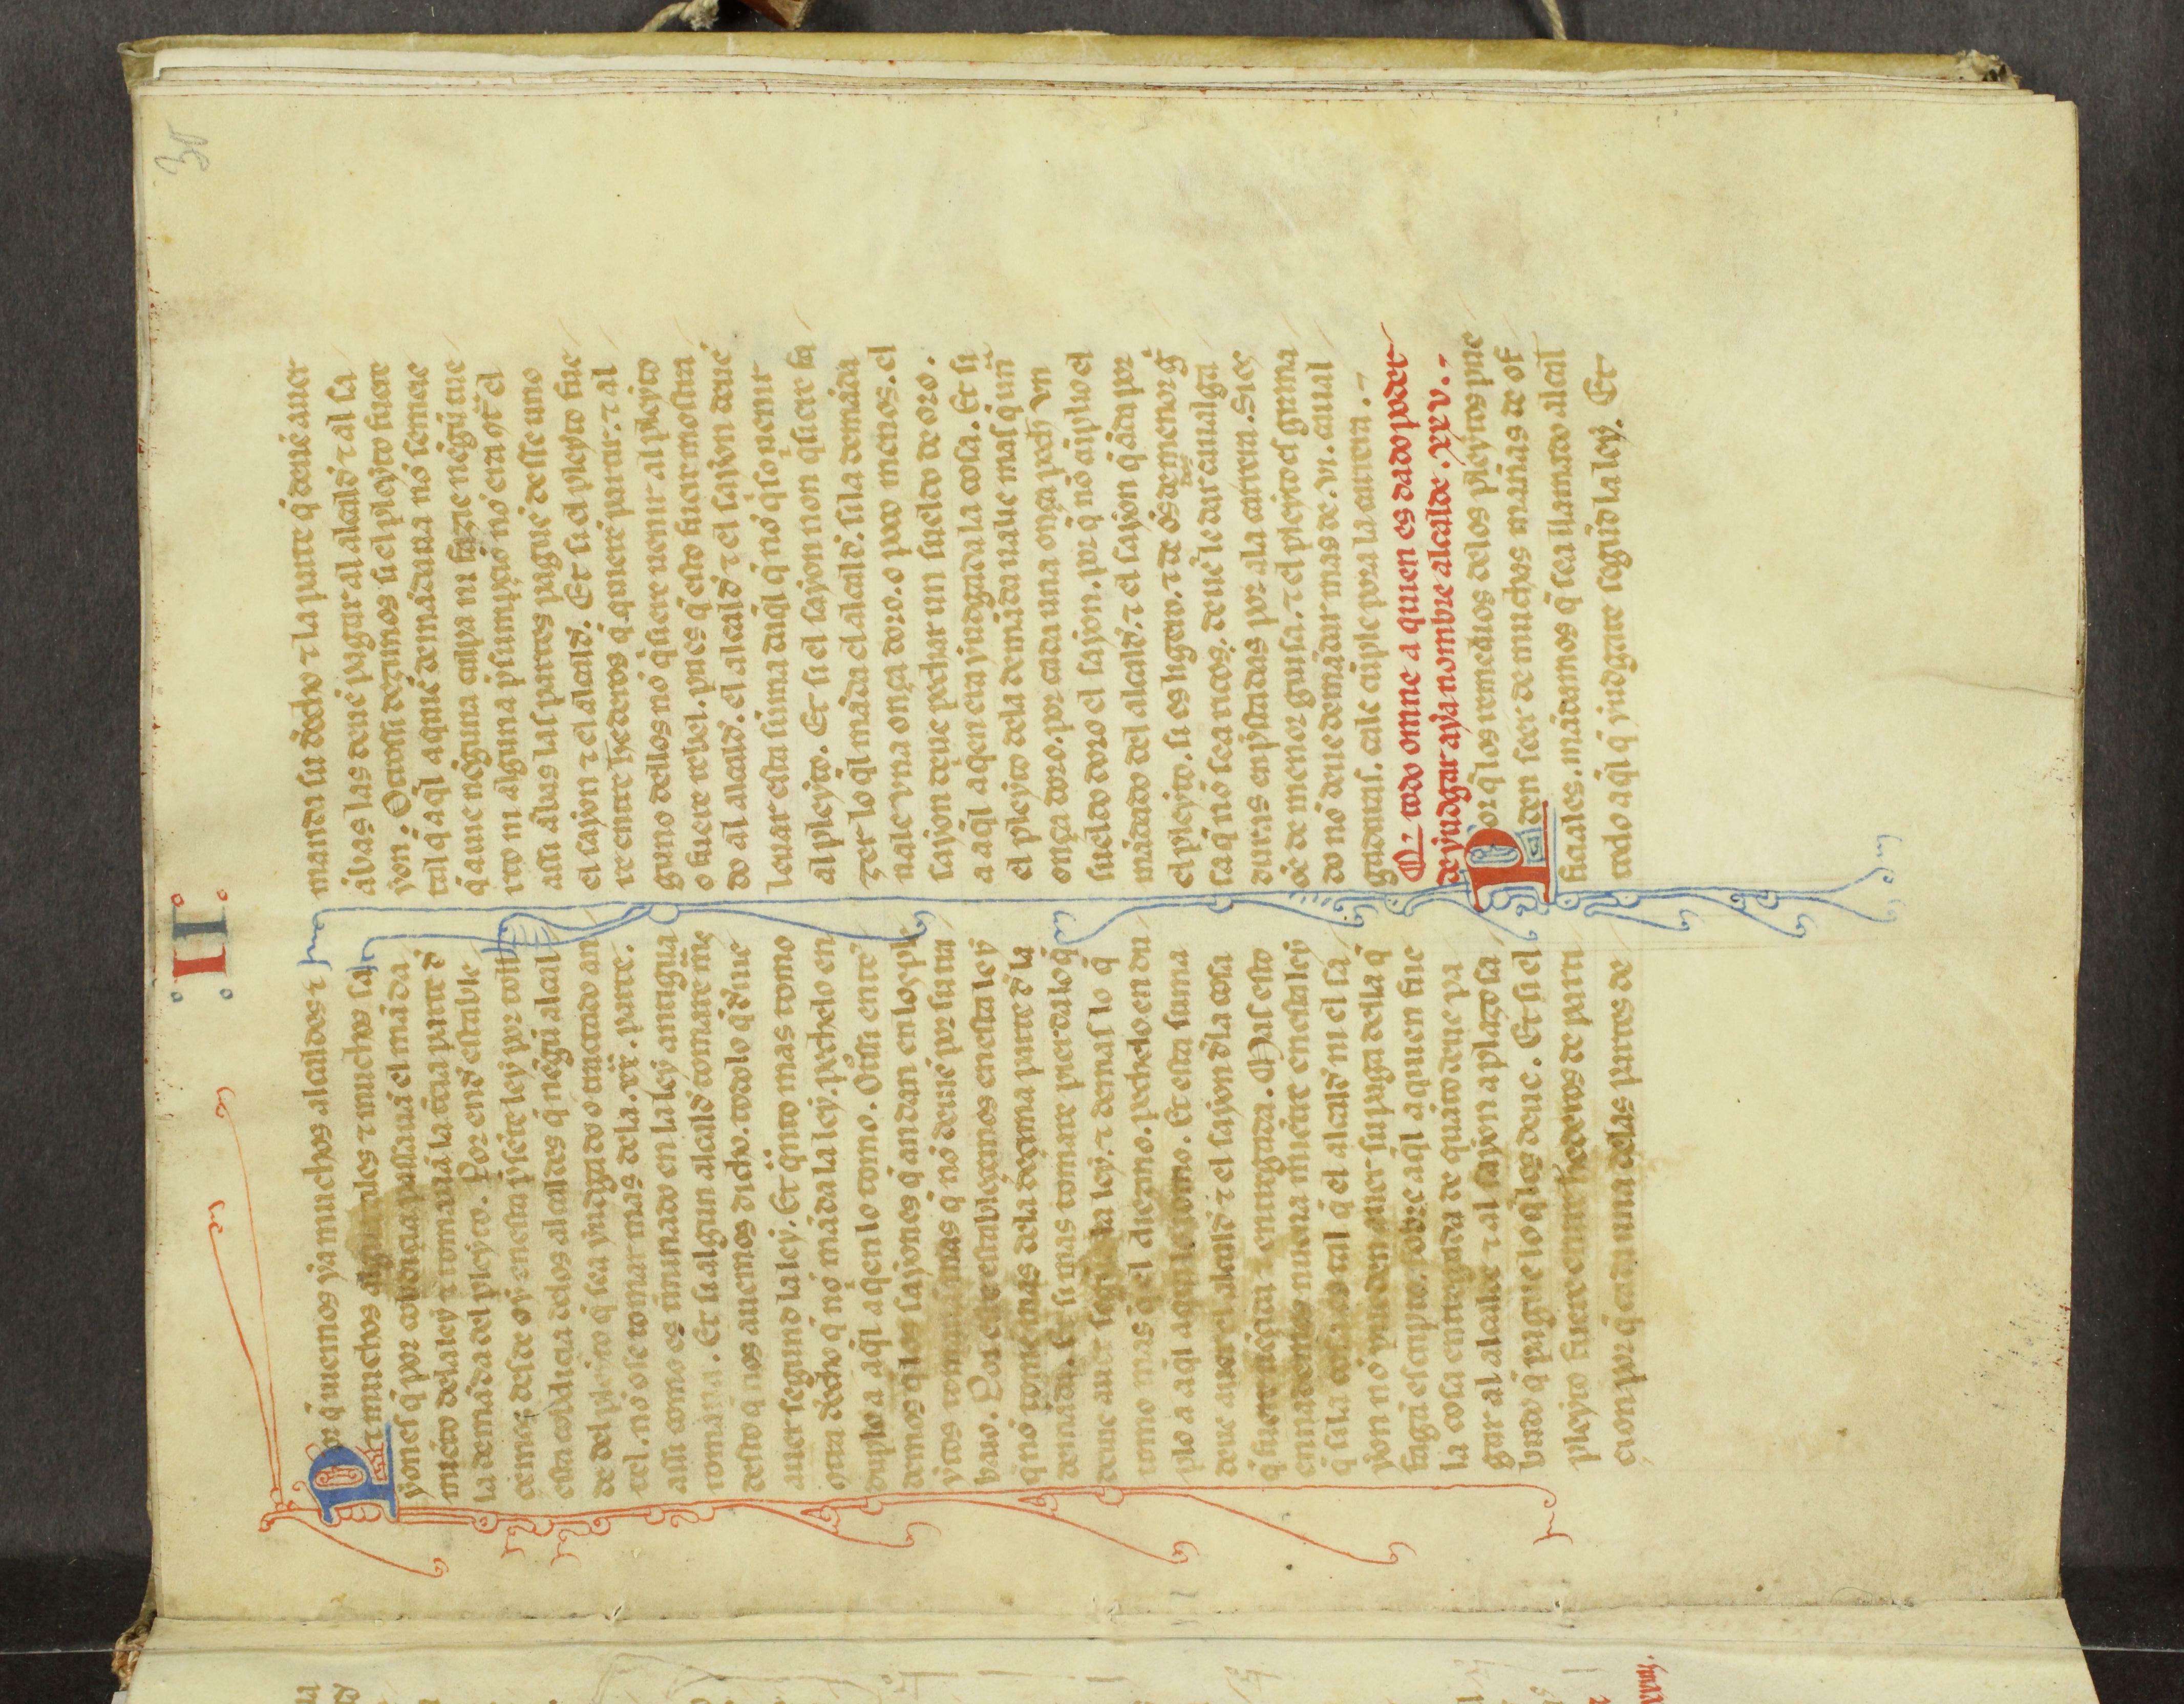 30
II
Por q̃ uiemos ya muchos alcaldes ⁊
⁊ muchos alguaziles ⁊ muchos sa
yones q̃ por cobdiçia passauã el mãda
miẽto dela ley ⁊ tomauã la tr̃ia parte d̃
la demãda del pleyto. Por end̃ estable
çemos desde oy enesta p̃sẽte ley por toller
esta cobdiçia delos alcaldes q̃ nẽgũ alcal
de del pleyto q̃ sea yudgado o tractado an
tel. nõ ose tomar mas dela. xx̃. parte.
assi como es tr̃minado en la ley antigua
romana. Et si algun alcald̃ tomare mas
desto q̃ nos auemos dicho. todo lo q̃ d̃ue
auer segund la ley. Et q̃nto mas tomo
cõtra d̃echo q̃ nõ mãda la ley. pechelo en
duplo a aq̃l a q̃en lo tomo. Otrossi entẽ
demos q̃ los sayones q̃ andan en los ple
ytos toman mas q̃ nõ deuẽ por su tra
baio. Por esto establecemos enesta ley
q̃ nõ tome mas dela dezima parte d̃ la
demãda. Et si mas tomare pierda lo q̃
deue auer segund la ley. ⁊ demas lo q̃
tomo mas q̃ el diezmo. pechelo en du
plo a aq̃l a qui lo tomo. Et esta suma
deue auer el alcald̃ ⁊ el sayon d̃la cosa
q̃ fuere uẽçida ⁊ entregada. Mas esto
ennademos nueua miẽtre enesta ley
q̃ si la cosa es tal q̃ el alcald̃ ni el sa
yon nõ pueden auer su paga della q̃
fagã escripto. sobre aq̃l a quien fue
la cosa entregada de quãto deue pa
gar al alcalde ⁊ al sayon a plazo sa
budo q̃ pague lo q̃ les deue. Et si el
pleyto fuere entre hederos de parti
cion por q̃ cada una delas partes de
manda su d̃echo ⁊ la parte q̃ deuẽ auer
ãbas las deuẽ pagar al alcald̃ ⁊ al sa
yon. Otrossi dezimos si el pleyto fuere
tal q̃ a aq̃l a que demãdaua nõ semeie
q̃ aue nẽguna culpa ni fazie nẽgũ tue
rto ni alguna p̃sumpciõ nõ era cõtr̃ el
assi ãbas las partes paguẽ desse uno
el sayon ⁊ el alcald̃. Et si el pleyto fue
re entre hederos q̃ quierẽ partir. ⁊ al
guno dellos nõ q̃siere uenir al pleyto
o fuere rebel. pues q̃ esto fuere mostra
do al alcald̃. el alcald̃ ⁊ el sayon deuẽ
leuar esta suma daq̃l q̃ nõ q̃so uenir
al pleyto. Et si el sayon non q̃siere fa
zer lo q̃l mãda el alcald̃. si la demãda
uale una onça doro. o poco menos. el
sayon deue pechar un sueldo de oro.
a aq̃l a q̃en era yudgada la cosa. Et si
el pleyto dela demãda uale mas q̃ una
onça doro. por cada una onça pech un
sueldo doro el sayon. por q̃ nõ cũplio el
mãdado del alcald̃. ⁊ el sayon q̃ ãda por
el pleyto. si es ligero. ⁊ de õs de menor g̃
sa q̃ nõ sea ricos. deuẽ le dar caualga
duras enp̃stadas por a la carrera. Si es
õe de menor guisa. ⁊ el pleyto es grãna
do nõ deue demãdar mas de. vi. caual
gaduras. cale cũple pora la carrera.
Q̃ todo omne a quien es dado poder
de yudgar aya nombre alcalde. xxv.
Porq̃ los remedios delos pleytos pue
den seer de muchas mañas de of
ficiales. mãdamos q̃ sea llamado alcal
todo aq̃l q̃ yudgare segũd la ley. Et